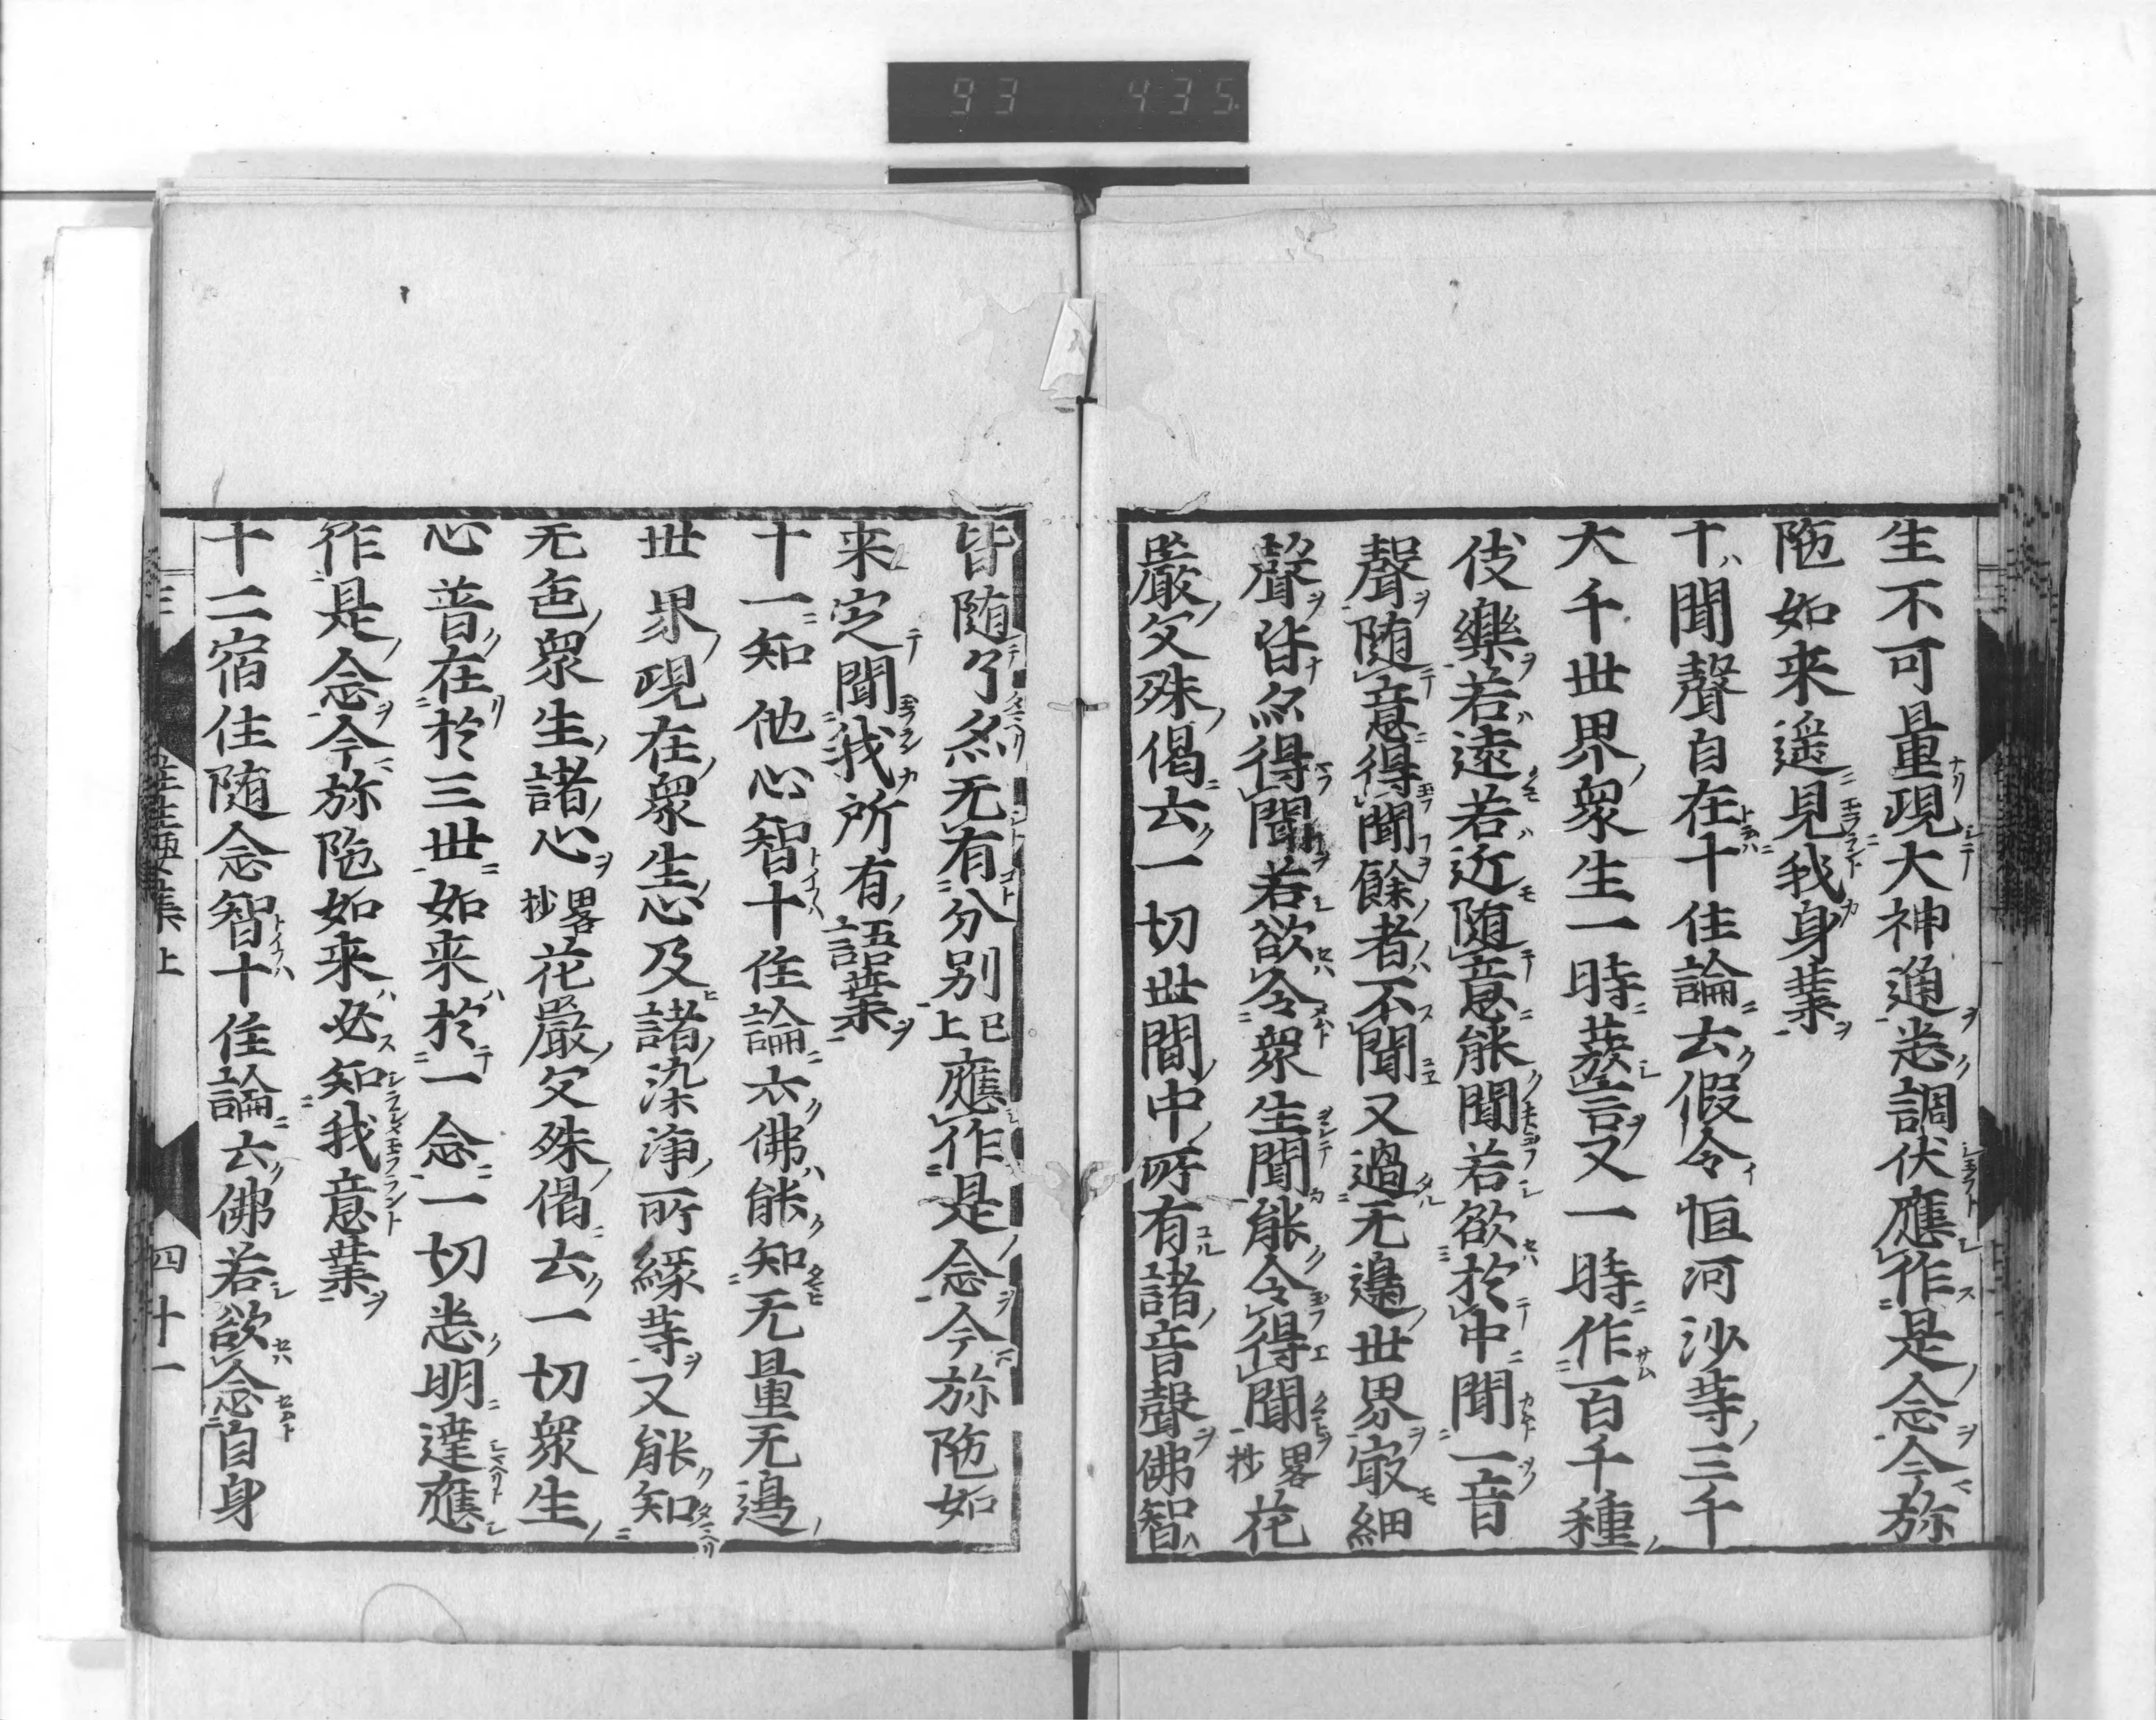 93 435
生不可量現大神通悉調伏應作是念今弥
陁如来遥見我身業
十聞聲自在十住論云假令恒河沙等三千
大千世界衆生一時發言又一時作百千種
伎樂若遠若近随意能聞若欲於中聞一音
聲随意得聞餘者不聞又過无邊世界冣細
聲皆亦得聞若欲令衆生聞能令得聞略抄花
嚴文殊偈云一切世間中所有諸音聲佛智
皆随了然无有分别已上應作是念今弥陁如
来定聞我所有語業
十一知他心智十住論云佛能知无量无邊
世界現在衆生心及諸染淨所縁等又能知
无色衆生諸心略抄花嚴文殊偈云一切衆生
心普在於三世如来於一念一切悉明達應
作是念今弥陁如来必知我意業
十二宿住随念智十住論云佛若欲念自身
集上 四十一